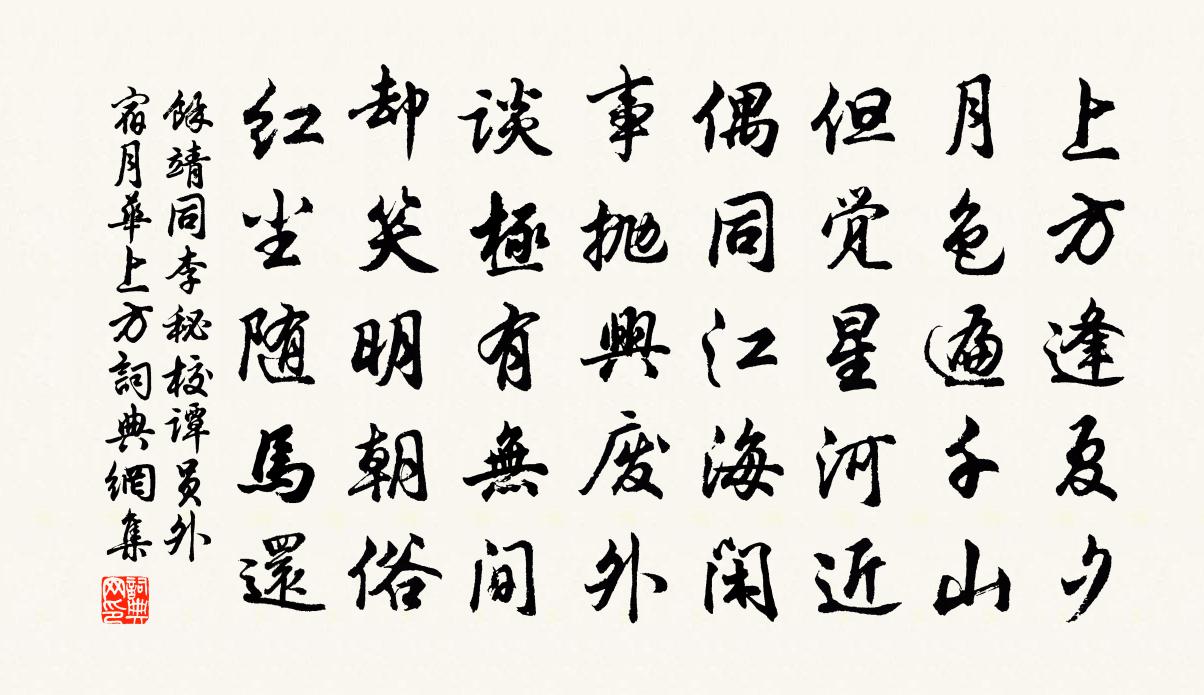 上方逢夏夕
月色遍千山
但觉星河近
偶同江海闲
事抛興废外
谈極有無间
却笑明朝俗
红尘随馬還
餘靖同李秘校谭员外
宿月華上方詞典網集
詞典
网印